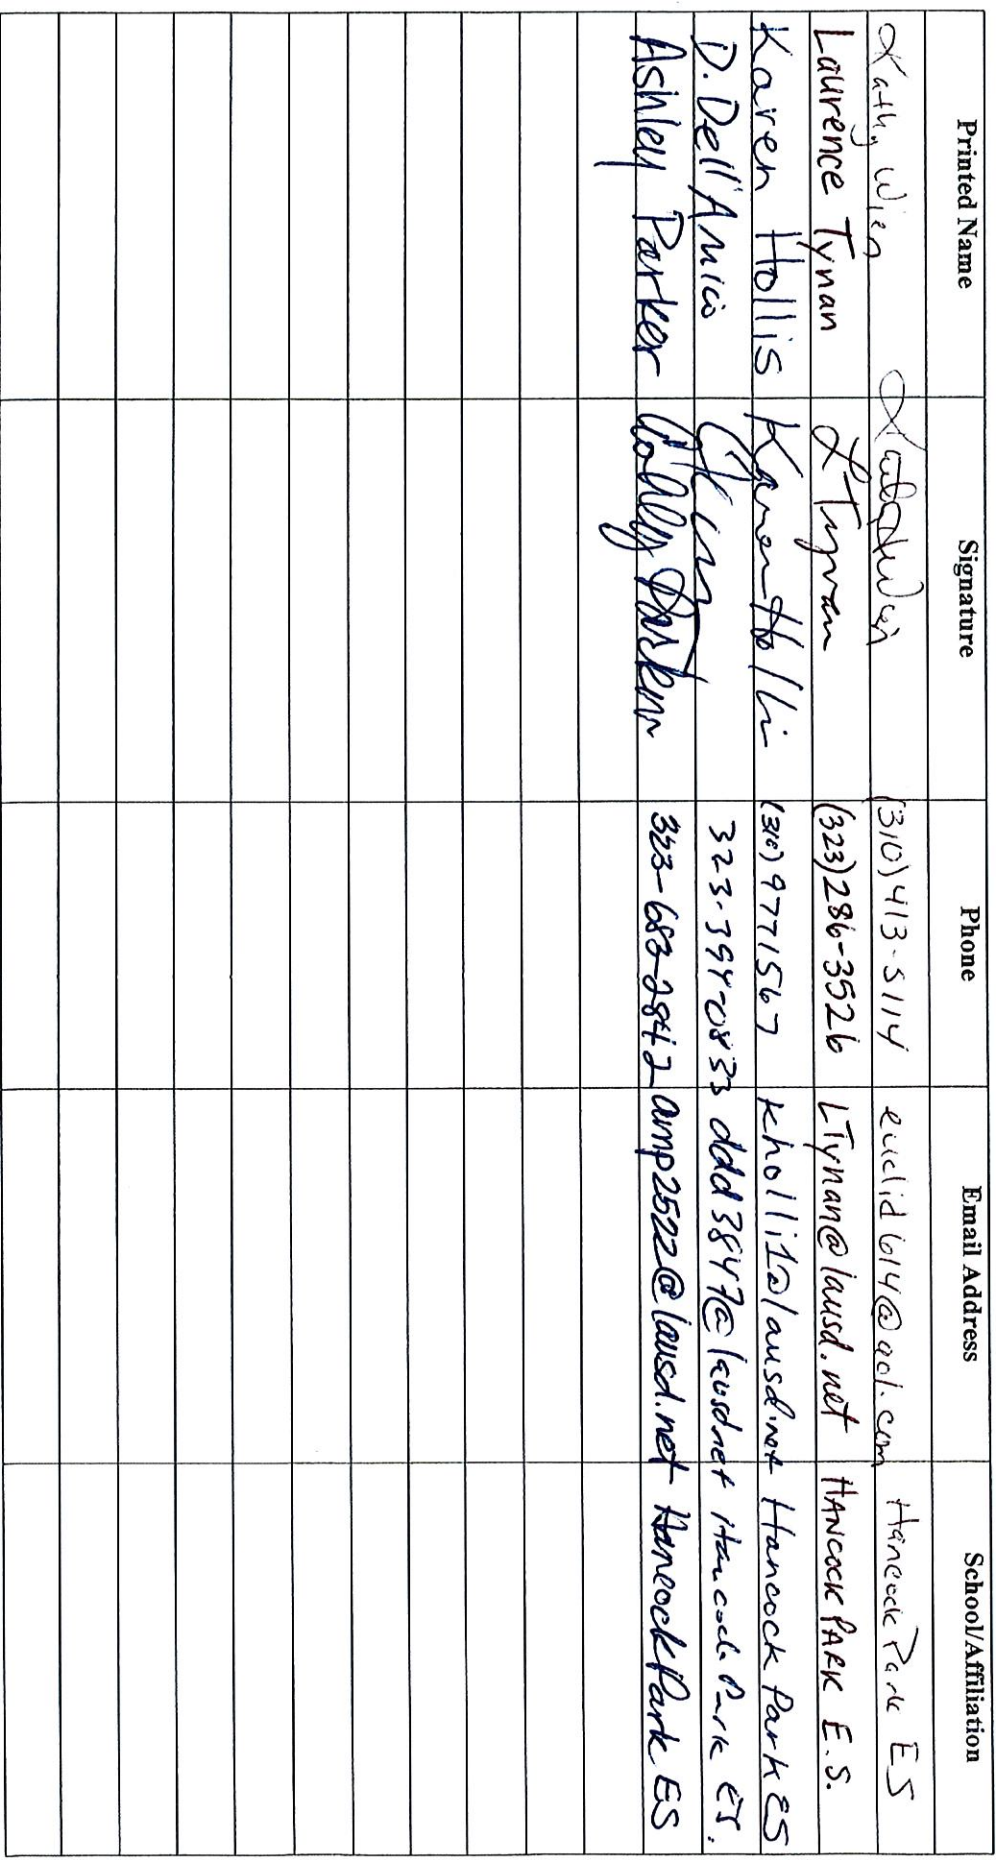 Printed Name Signature Phone Email Address School/Affiliation
Kathy Wien (310) 413-5114 euclid614@aol.com Hancock Park ES
Laurence Tynan L Tynan (323) 286-3526 LTynan@lausd.net HANCOCK PARK E.S.
Karen Hollis Karen Hollis (310) 9771567 Kholli1@lausd.net Hancock Park ES
D. Dell'Amico 323-394-0833 ddd3847@lausd.net Hancock Park ES.
Ashley Parker Ashley Parker 323-683-2842 amp2522@lausd.net Hancock Park ES